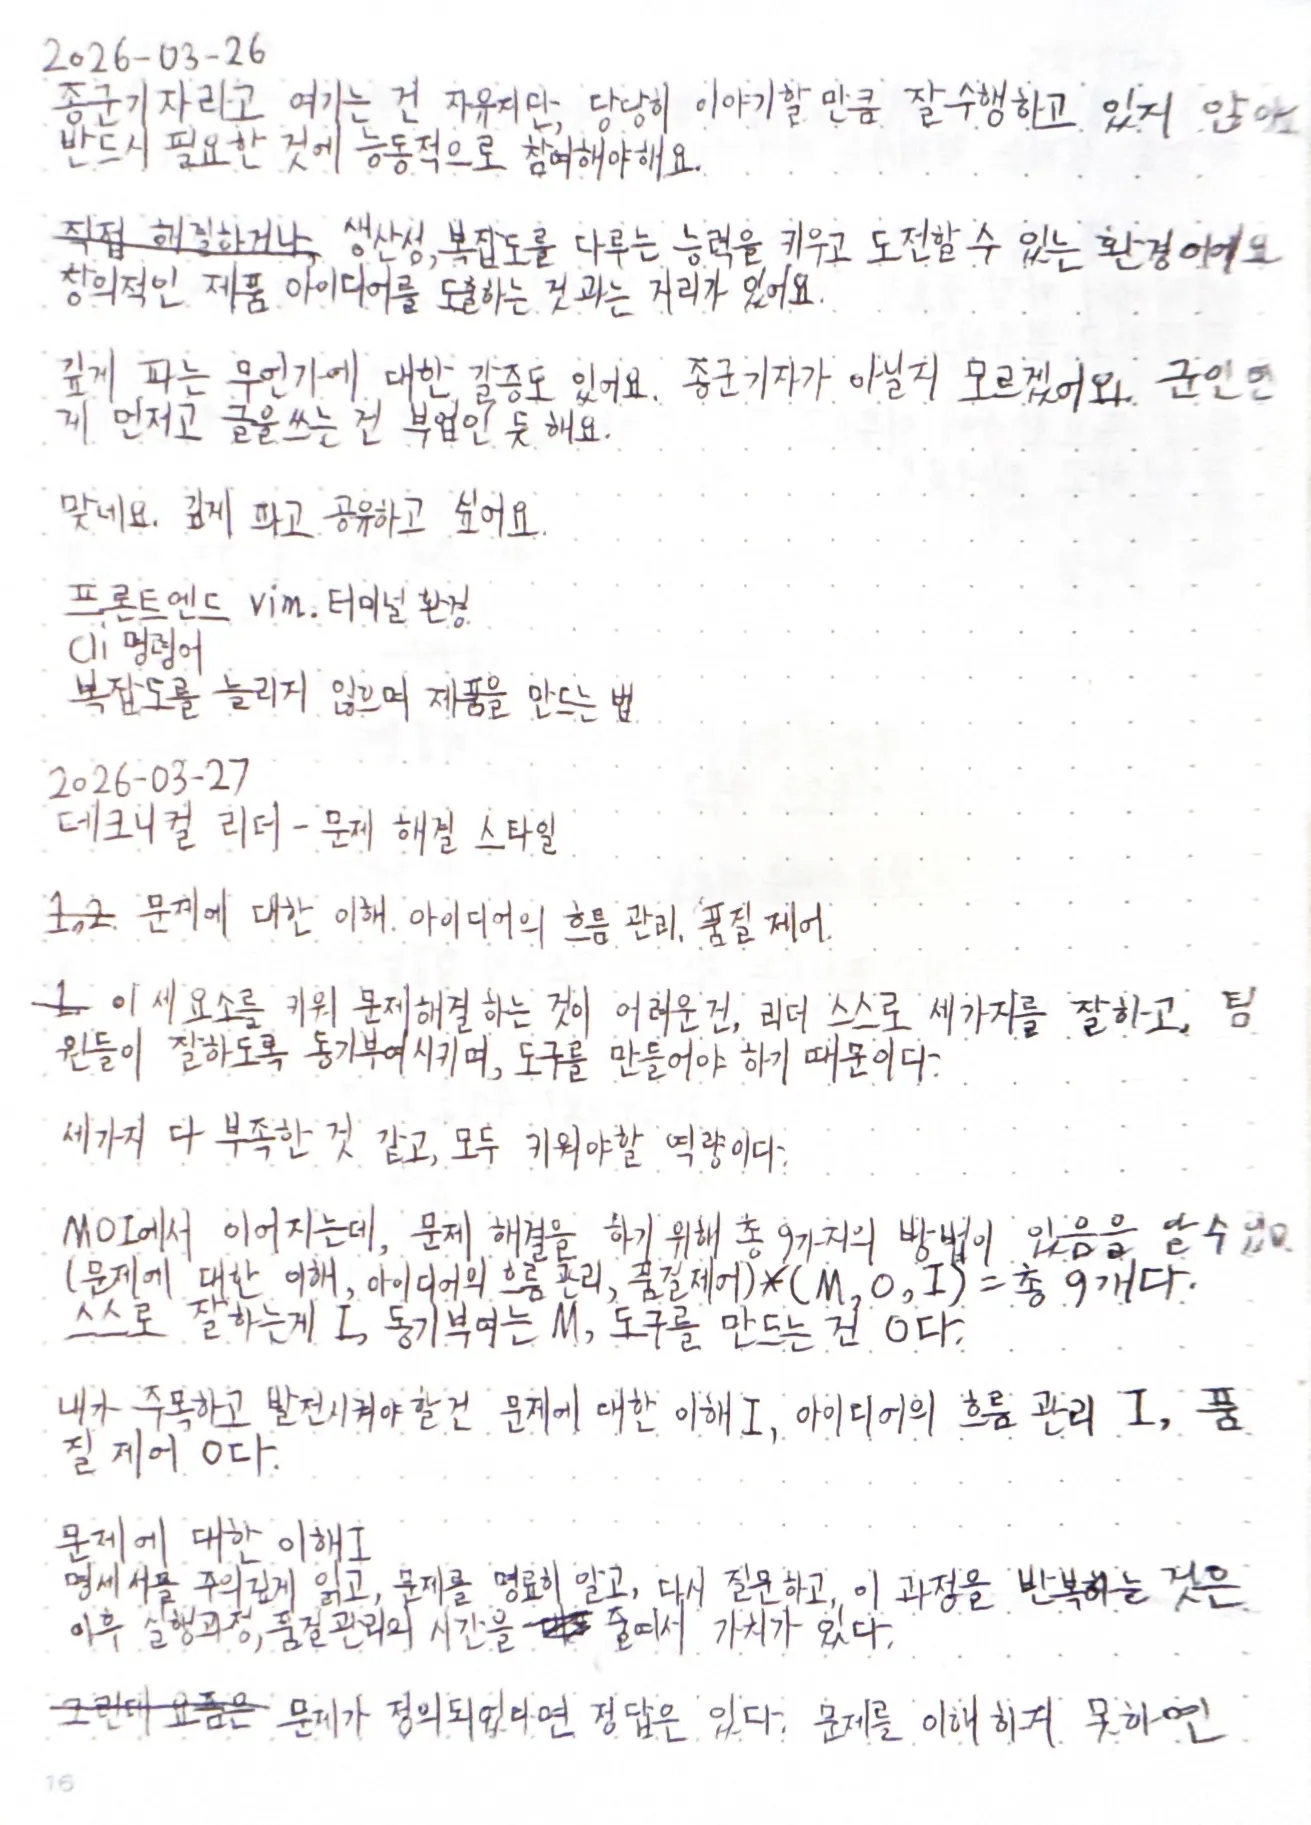 2026-03-26
종군기자라고 여기는 건 자유지만, 당당히 이야기할 만큼 잘 수행하고 있지 않아요
반드시 필요한 것에 능동적으로 참여해야해요.
직접 해결하거나, 생산성, 복잡도를 다루는 능력을 키우고 도전할 수 있는 환경이에요
창의적인 제품 아이디어를 도출하는 것과는 거리가 있어요.
깊게 파는 무언가에 대한 갈증도 있어요. 종군기자가 아닐지 모르겠어요. 군인인
게 먼저고 글을쓰는 건 부업인 듯 해요.
맞네요. 깊게 파고 공유하고 싶어요.
프론트엔드 vim. 터미널 환경
Cli 명령어
복잡도를 늘리지 않으며 제품을 만드는 법
2026-03-27
테크니컬 리더 - 문제 해결 스타일
1,2 문제에 대한 이해. 아이디어의 흐름 관리. 품질 제어.
1 이 세 요소를 키워 문제해결 하는 것이 어려운건, 리더 스스로 세가지를 잘하고, 팀
원들이 잘하도록 동기부여시키며, 도구를 만들어야 하기 때문이다.
세가지 다 부족한 것 같고, 모두 키워야할 역량이다.
MOI에서 이어지는데, 문제 해결을 하기 위해 총 9가지의 방법이 있음을 알 수 있다.
(문제에 대한 이해, 아이디어의 흐름 관리, 품질제어)*(M, O, I) = 총 9개다.
스스로 잘하는게 I, 동기부여는 M, 도구를 만드는 건 O다.
내가 주목하고 발전시켜야 할건 문제에 대한 이해 I, 아이디어의 흐름 관리 I, 품
질 제어 O다.
문제에 대한 이해 I
명세서를 주의깊게 읽고, 문제를 명료히 알고, 다시 질문하고, 이 과정을 반복하는 것은
이후 실행과정, 품질관리의 시간을 줄여서 가치가 있다.
그런데 요즘은 문제가 정의되었다면 정답은 있다. 문제를 이해하지 못하면
16